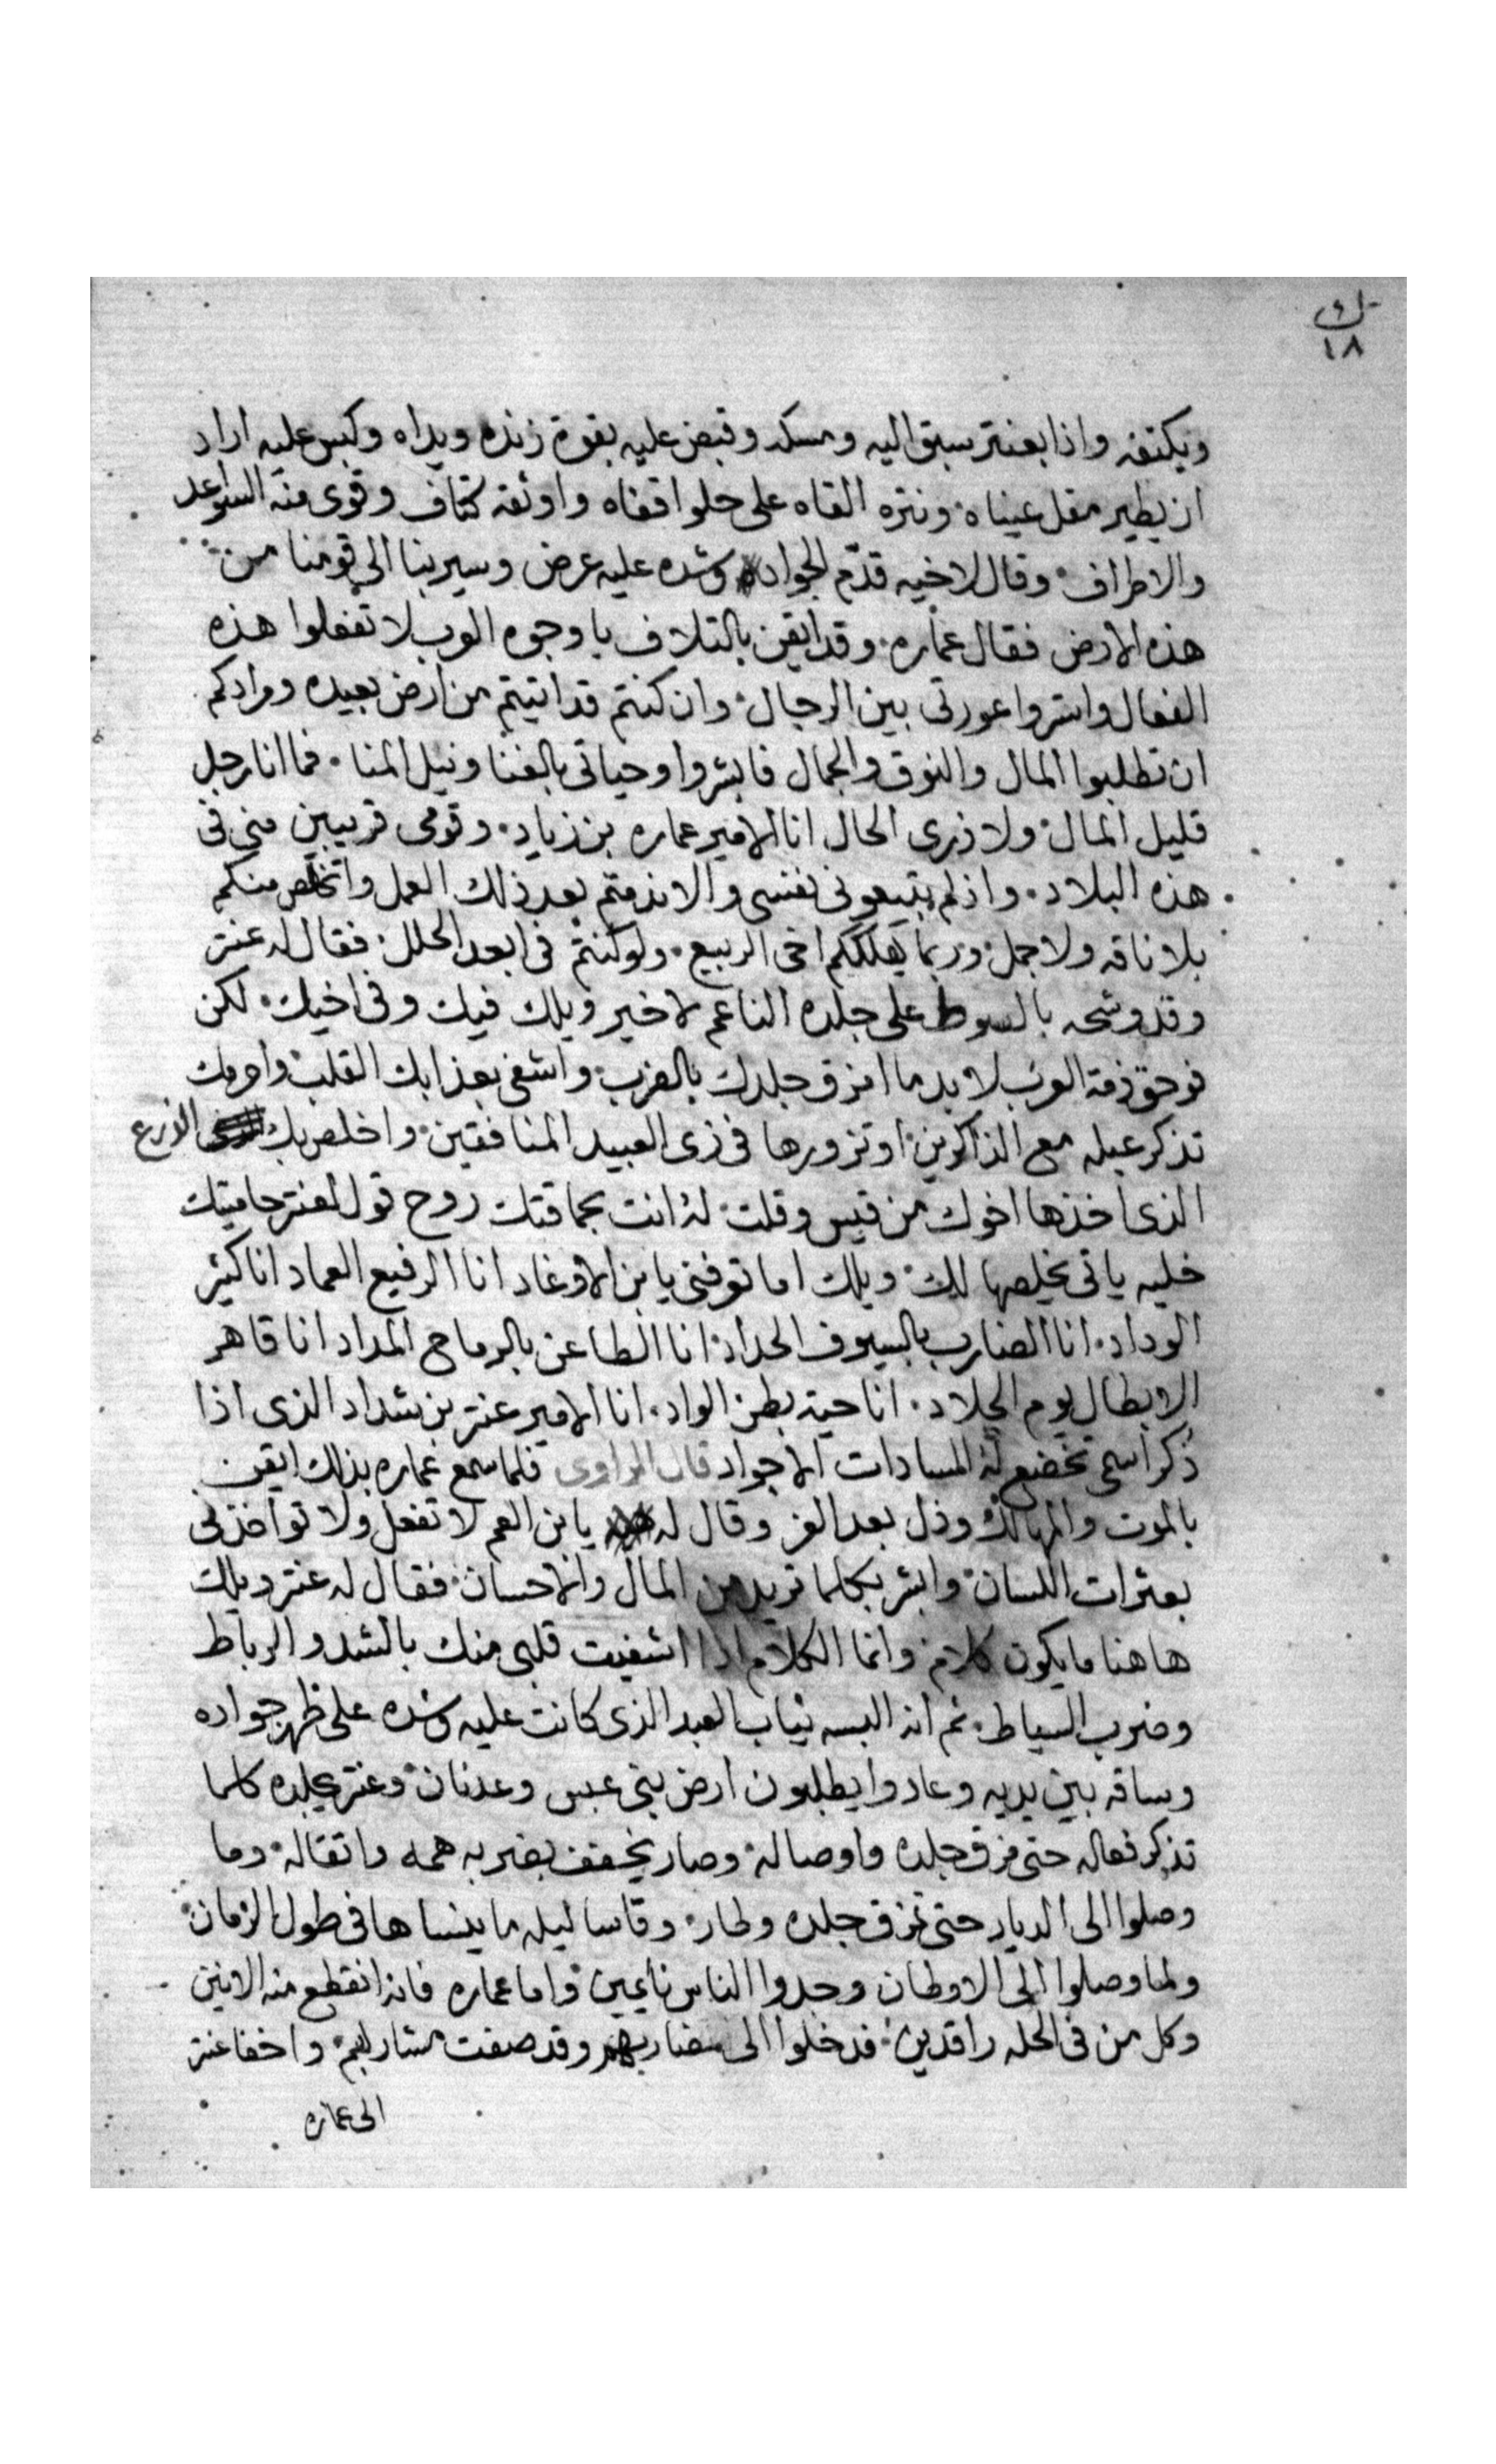 ك
١٨
ويكتفه واذا بعنتر سبق اليه ومسكه وقبض عليه بقوة زنده ويداه وكبس عليه اراد
ان يطير مقل عيناه ونتره القاه على حلوا قفاه واوثقه كتاف وقوى منه السواعد
والاطراف وقال لاخيه قدّم الجواد وشده عليه عرض وسير بنا الى قومنا من
هذه الارض فقال عماره وقد ايقن بالتلاف يا وجوه العرب لا تفعلوا هذه
الفعال واستروا عورتى بين الرجال وان كنتم قد اتيتم من ارض بعيده ومرادكم
ان تطلبوا المال والنوق والجمال فابشروا وحياتى بالغنا ونيل المنا فما انا رجل
قليل المال ولا ذرى الحال انا الامير عماره بن زياد وقومى قريبين منى فى
هذه البلاد وان لم تبيعونى نفسى والا ندمتم بعد ذلك العمل واتخلص منكم
بلا ناقه ولا جمل وربما يهلككم اخى الربيع ولو كنتم فى ابعد الحلل فقال له عنتر
وقد وشحه بالسوط على جلده الناعم لا خير ويلك فيك وفى اخيك لكن
فوحق ذمة العرب لا بد ما امزق جلدك بالضرب واشفى بعذابك القلب واحرمك
تذكر عبله مع الذاكرين او تزورها فى زى العبيد المنافقين واخلص بك الدرع
الذى اخذها اخوك من قيس وقلت له انت بحماقتك روح قول لعنتر حاميتك
خليه ياتى يخلصها لك ويلك اما توفنى يا بن الاوغاد انا الرفيع العماد انا كثير
الوداد انا الضارب بالسيوف الحداد انا الطاعن بالرماح المداد انا قاهر
الابطال يوم الجلاد انا حية بطن الواد انا الامير عنتر بن شداد الذى اذا
ذكر اسمى تخضع له السادات الاجواد قال الراوى فلما سمع عماره بذلك ايقن
بالموت والمهالك وذل بعد العز وقال له يا بن العم لا تفعل ولا توافذنى
بعثرات اللسان وابشر بكلما تريد من المال والاحسان فقال له عنتر ويلك
هاهنا ما يكون كلام وانما الكلام اذا اشفيت قلبى منك بالشد والرباط
وضرب السياط ثم انه البسه ثياب العبد الذى كانت عليه وشده على ظهر جواده
وساقه بين يديه وعادوا يطلبون ارض بنى عبس وعدنان وعنتر يجلده كلما
تذكر فعاله حتى مزق جلده واوصاله وصار يخفف بضربه همه واثقاله وما
وصلوا الى الديار حتى تمزق جلده وطار وقاسا ليله ما ينساها فى طول الزمان
ولما وصلوا الى الاوطان وجدوا الناس نايمين واما عماره فانه انقطع منه الانين
وكل من فى الحله راقدين فدخلوا الى مضاربهم وقد صفت مشاربهم واخفا عنتر
الى عماره